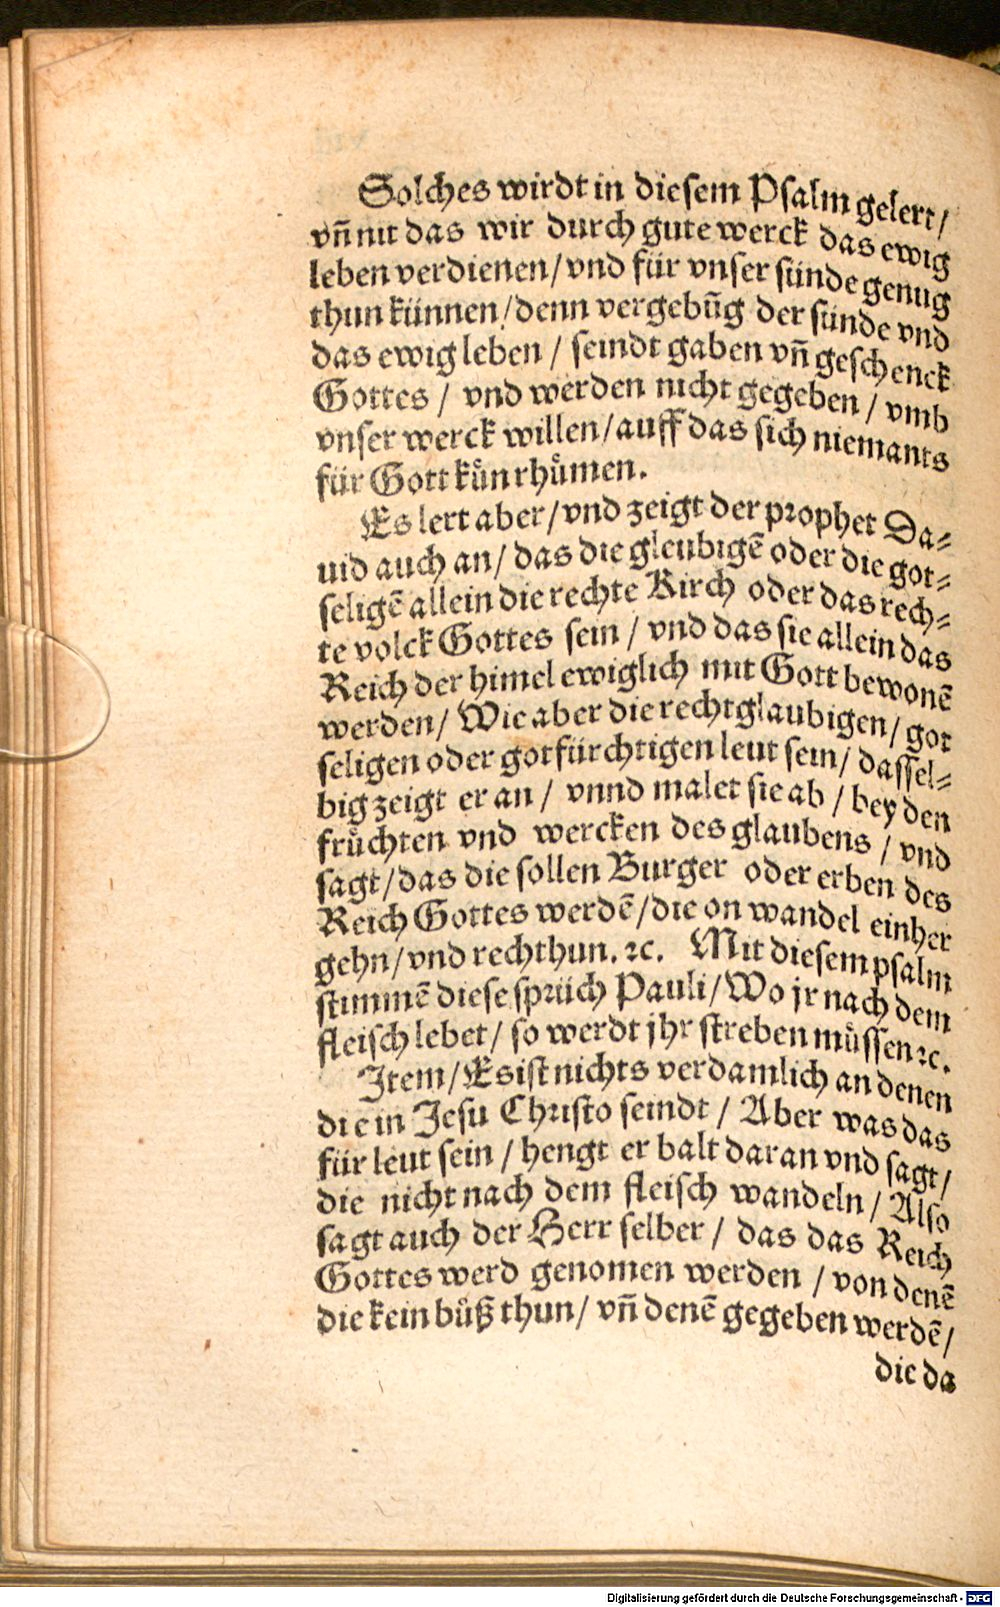 Solches wirdt in diesem Psalm gelert/
vñ nit das wir durch gute werck das ewig
leben verdienen/vnd für vnser sünde genug
thun künnen/denn vergebũg der sünde vnd
das ewig leben / seindt gaben vñ geschenck
Gottes / vnd werden nicht gegeben / vmb
vnser werck willen/auff das sich niemants
für Gott kůn rhůmen.
Es lert aber/vnd zeigt der prophet Da⸗
uid auch an/ das die gleubigẽ oder die got⸗
seligẽ allein die rechte Kirch oder das rech⸗
te volck Gottes sein / vnd das sie allein das
Reich der himel ewiglich mit Gott bewonẽ
werden/ Wie aber die rechtglaubigen/ got
seligen oder gotfürchtigen leut sein/ dassel⸗
big zeigt er an / vnnd malet sie ab / bey den
frůchten vnd wercken des glaubens / vnd
sagt/das die sollen Burger oder erben des
Reich Gottes werdẽ/die on wandel einher
gehn/vnd recht thun. ꝛc. Mit diesem psalm
stimmẽ diese sprüch Pauli/Wo jr nach dem
fleisch lebet/ so werdt jhr streben můssen ꝛc.
Item/Es ist nichts verdamlich an denen
die in Jesu Christo seindt / Aber was das
für leut sein / hengt er balt daran vnd sagt/
die nicht nach dem fleisch wandeln / Also
sagt auch der Herr selber / das das Reich
Gottes werd genomen werden / von denẽ
die kein bůß thun/ vñ denẽ gegeben werdẽ/
die da
Digitalisierung gefördert durch die Deutsche Forschungsgemeinschaft - DFG